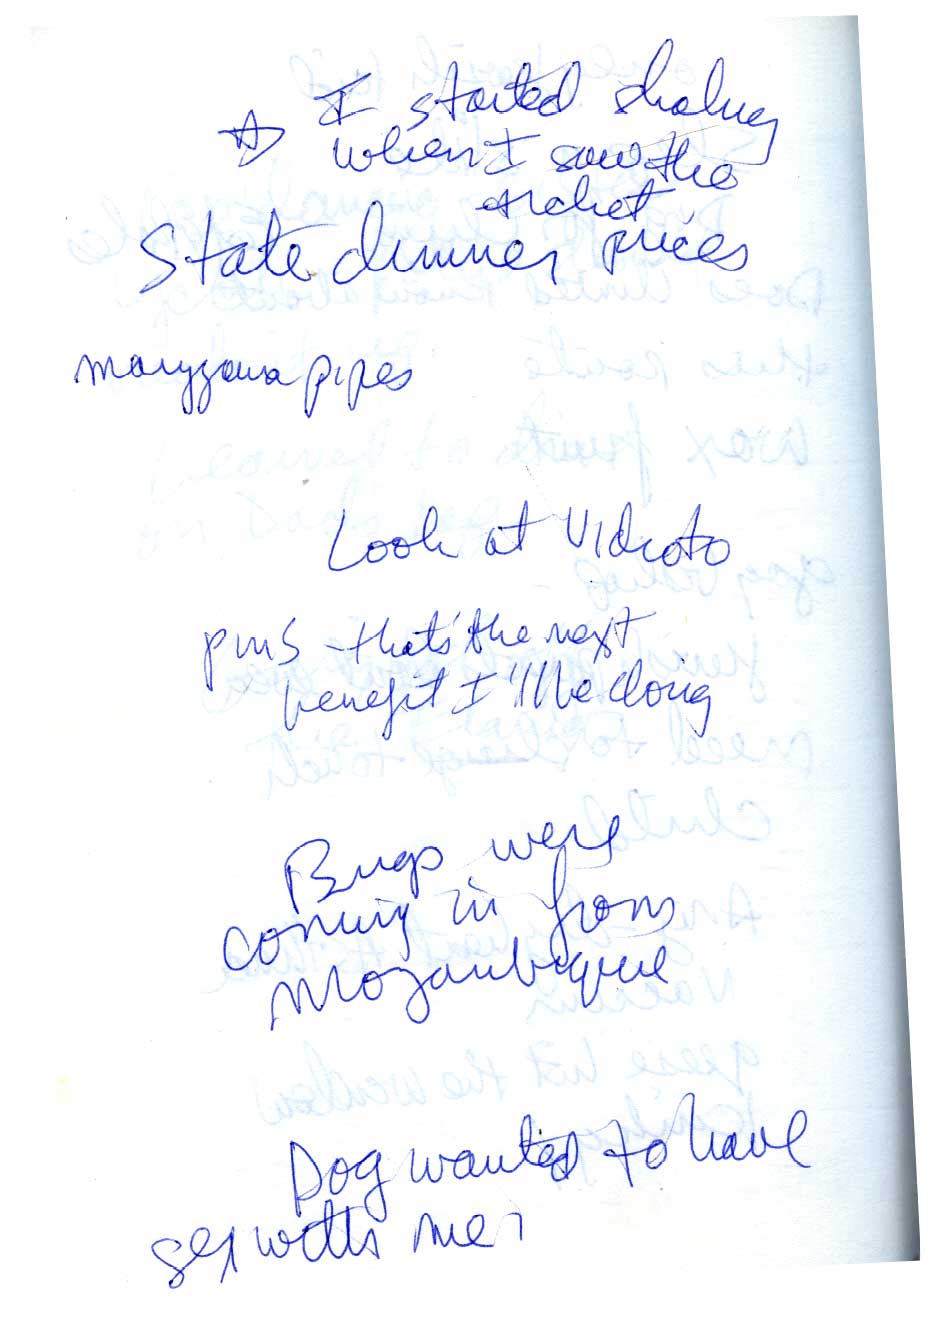 ☆ I started shaking
when I saw the
ticket
State dinner prices
maryzana pipes
Look at Vidioto
pms - that's the next
benefit I'll be doing
Bugs were
coming in from
Mozambique
Dog wanted to have
sex with me